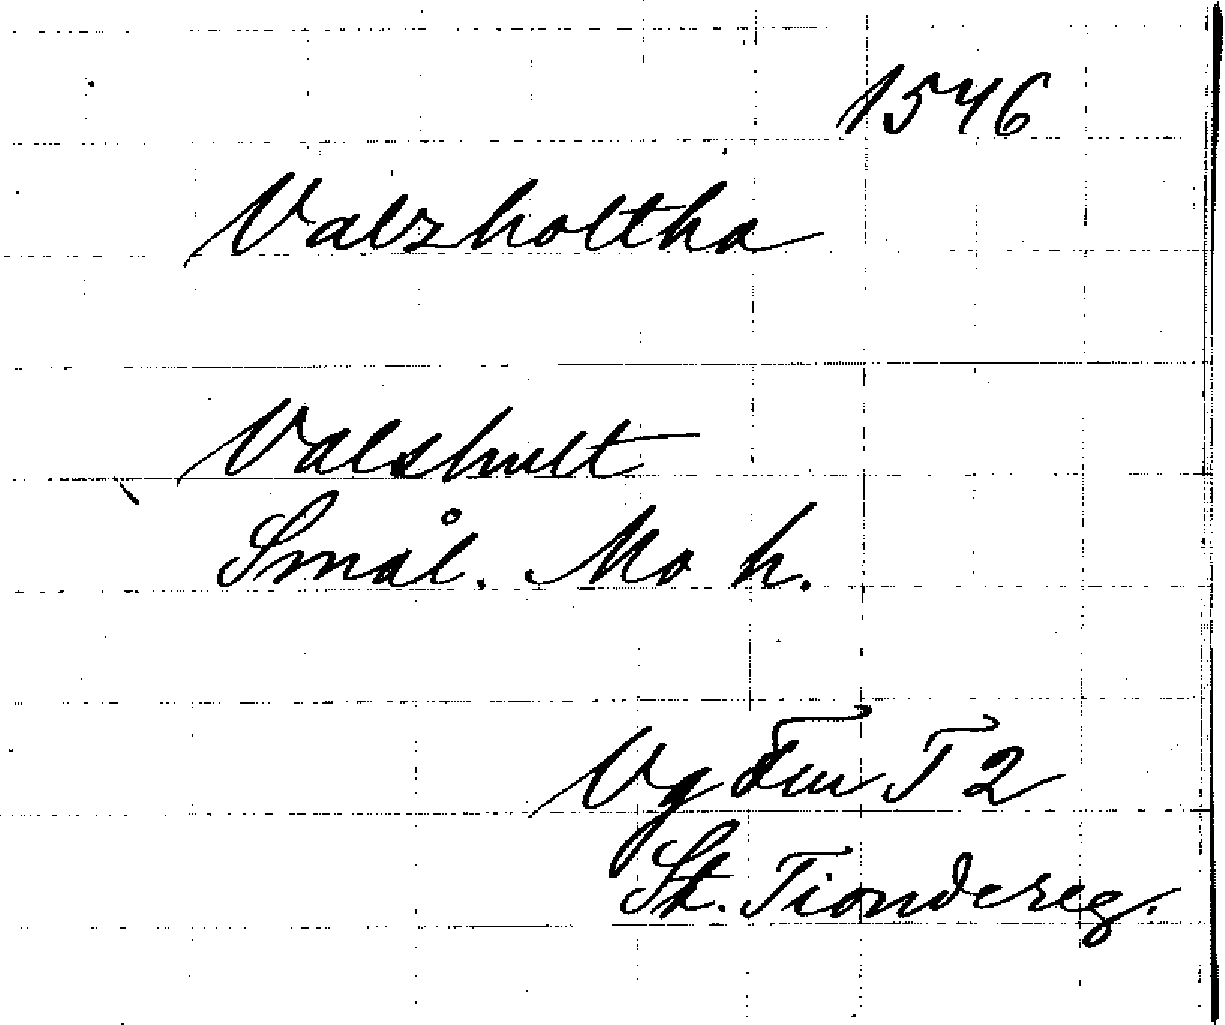 1546
Valzholtha
Valshult
Smål. Mo h.
Vg Fu T 2
St. Tiondereg.